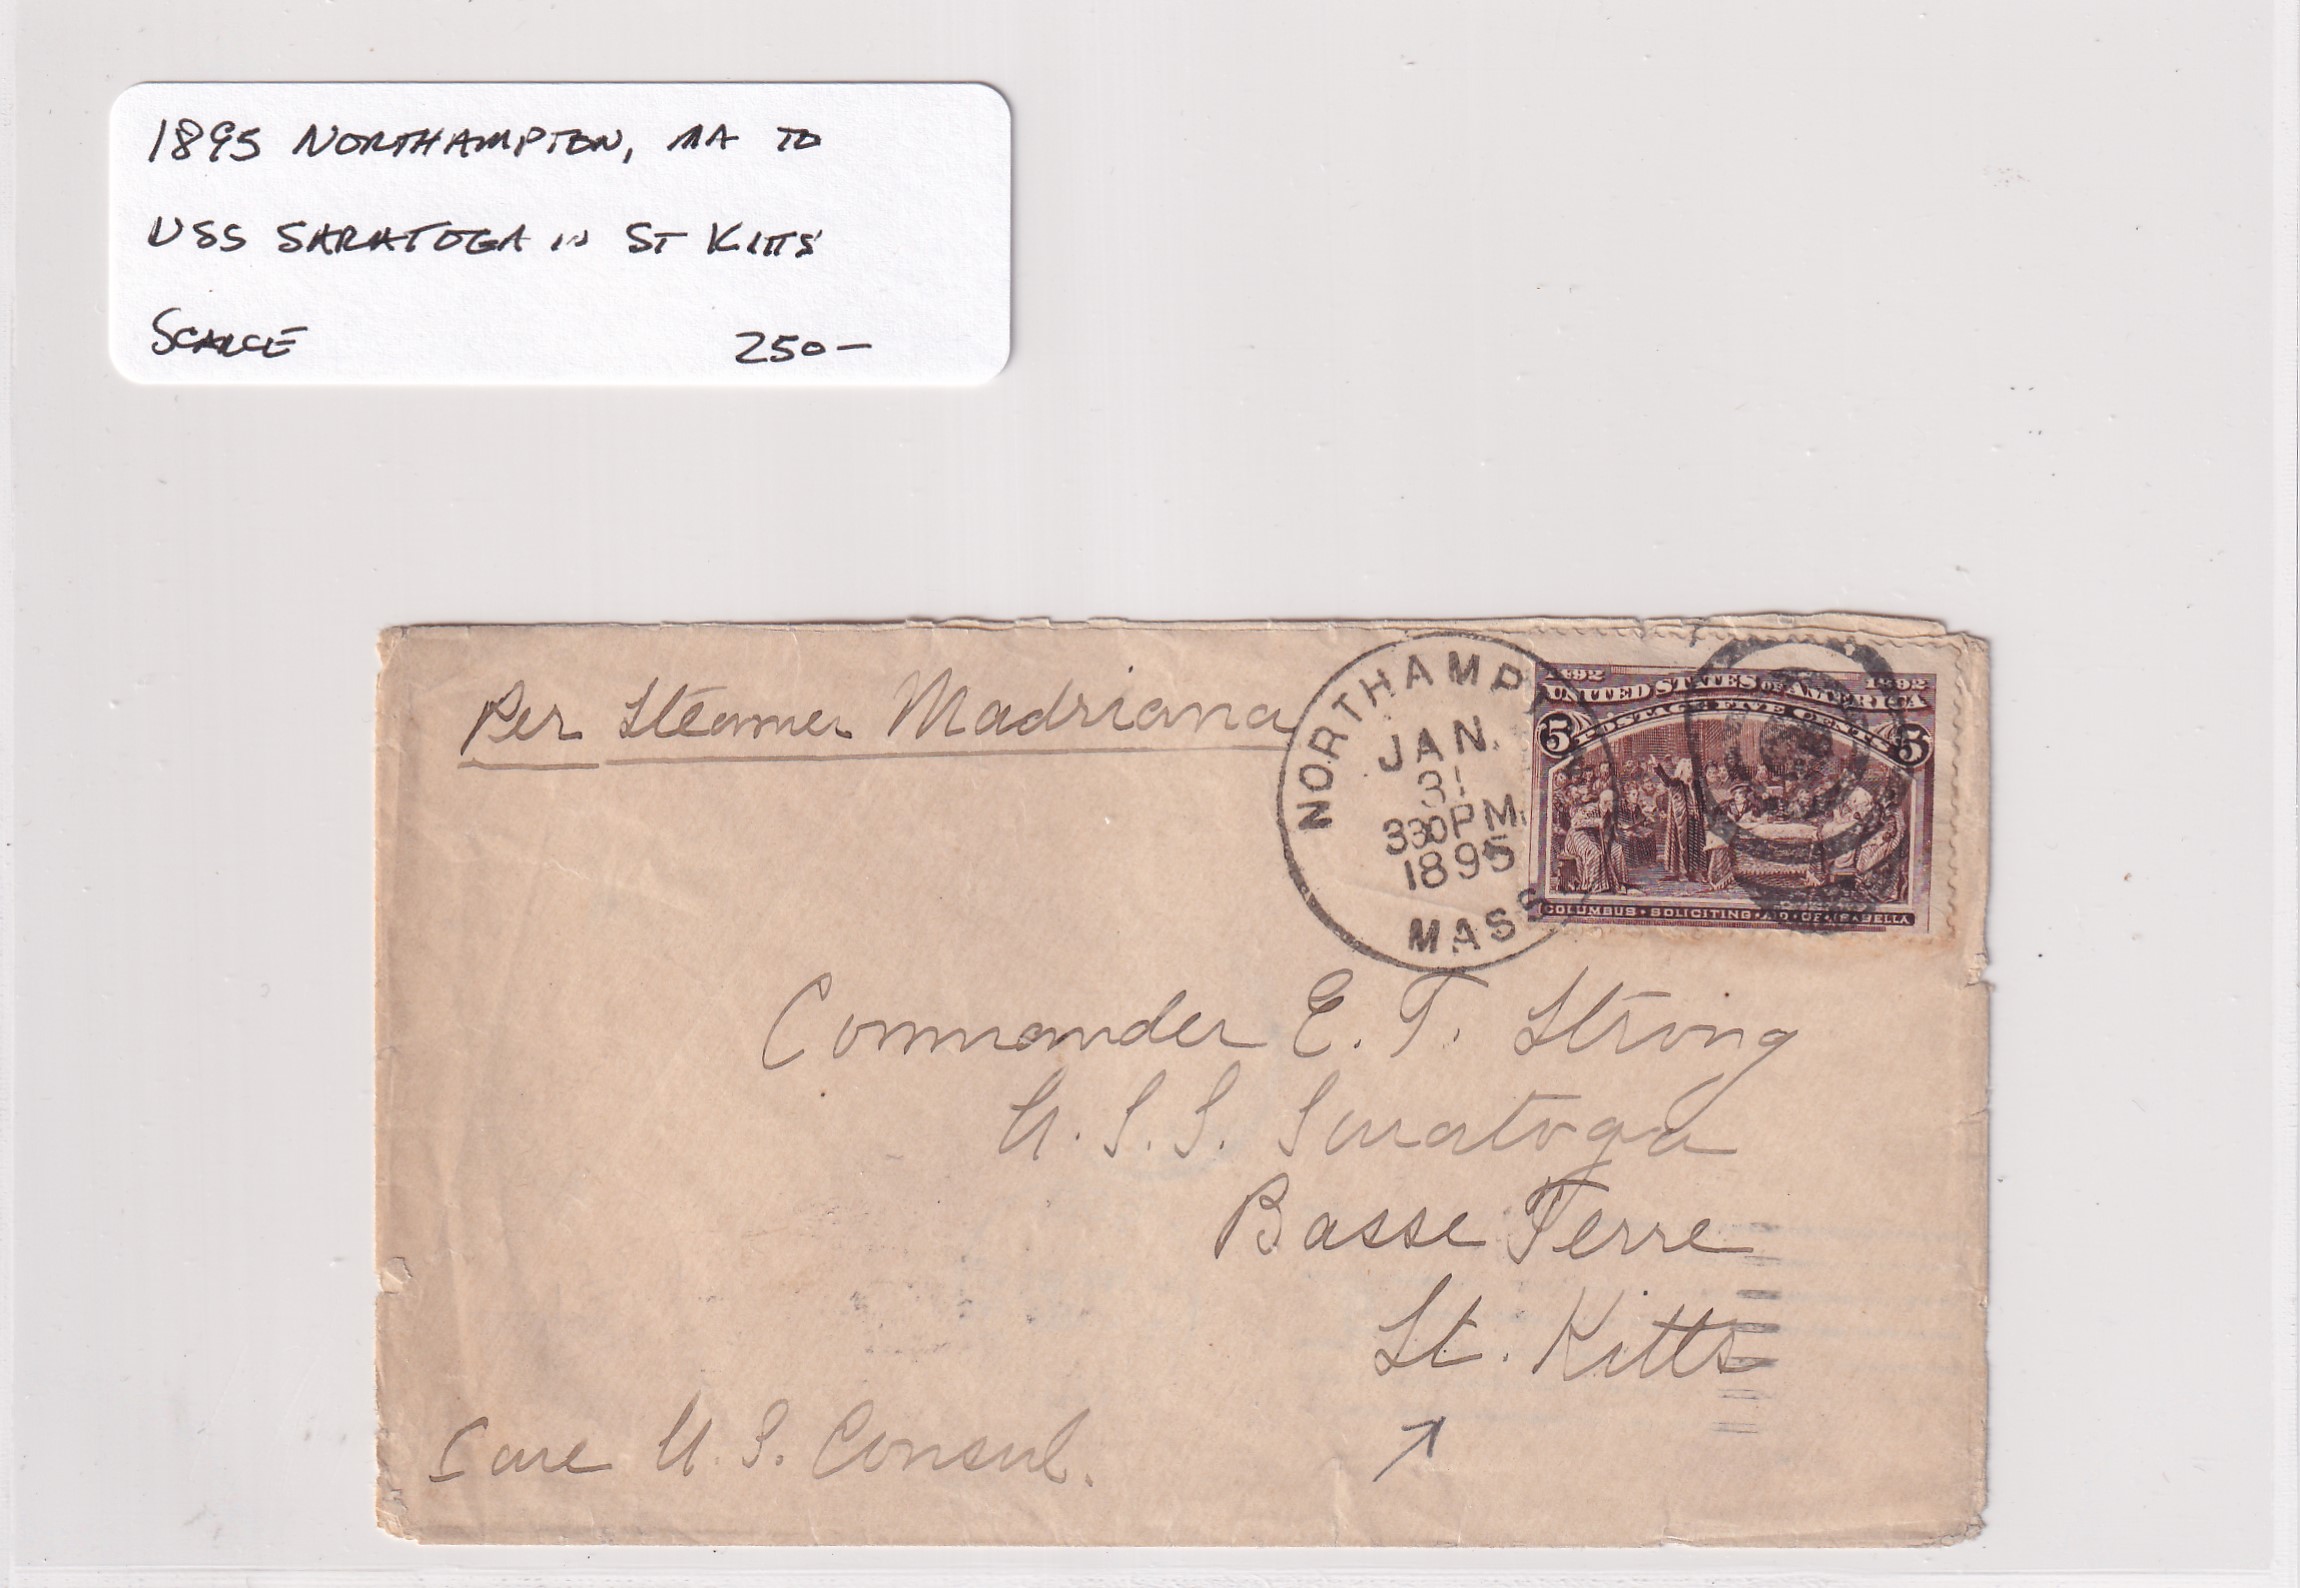 1895 NORTHAMPTON, MA TO
USS SARATOGA in ST KITTS
SCARCE 250—
Per Steamer Madriana
NORTHAMPT
JAN.
31
330PM.
1895
MASS
1492 1892
UNITED STATES OF AMERICA
POSTAGE FIVE CENTS
5 5
COLUMBUS · SOLICITING · AID · OF · ISABELLA
Commander E. T. Strong
U.S.S. Saratoga
Basse Terre
St. Kitts
Care U.S. Consul.